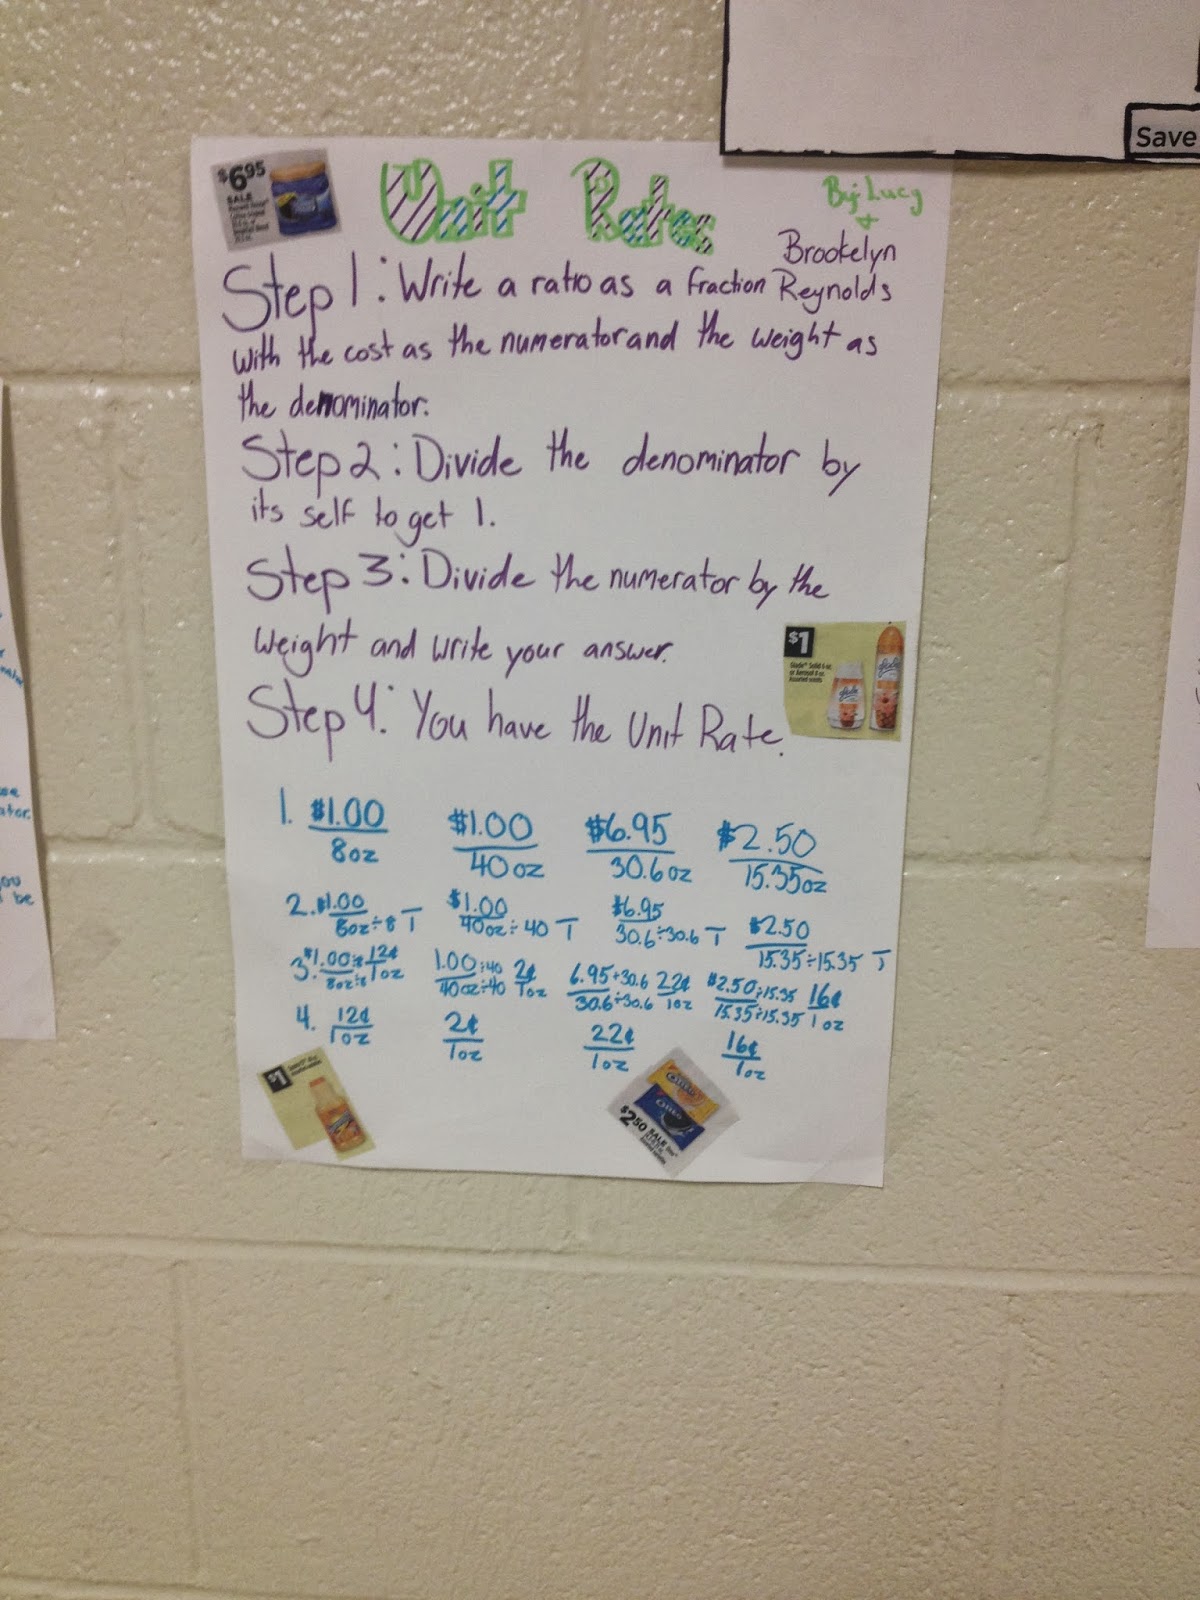 Save
$6.95
SALE
Unit Rates
By: Lucy
+
Brookelyn
Reynolds
Step 1: Write a ratio as a fraction
with the cost as the numerator and the weight as
the denominator.
Step 2: Divide the denominator by
its self to get 1.
Step 3: Divide the numerator by the
weight and write your answer.
Step 4: You have the Unit Rate.
$1
Glade® Solid 6 oz.
or Aerosol 8 oz.
Assorted scents
glade
glade
1. $1.00/8oz $1.00/40oz $6.95/30.6oz $2.50/15.35oz
2. $1.00/8oz÷8 /1 $1.00/40oz÷40 /1 $6.95/30.6÷30.6 /1 $2.50/15.35÷15.35 /1
3. $1.00÷8/8oz÷8 12¢/1oz 1.00÷40/40oz÷40 2¢/1oz 6.95÷30.6/30.6÷30.6 22¢/1oz $2.50÷15.35/15.35÷15.35 16¢/1oz
4. 12¢/1oz 2¢/1oz 22¢/1oz 16¢/1oz
$1
OREO
$2.50 SALE